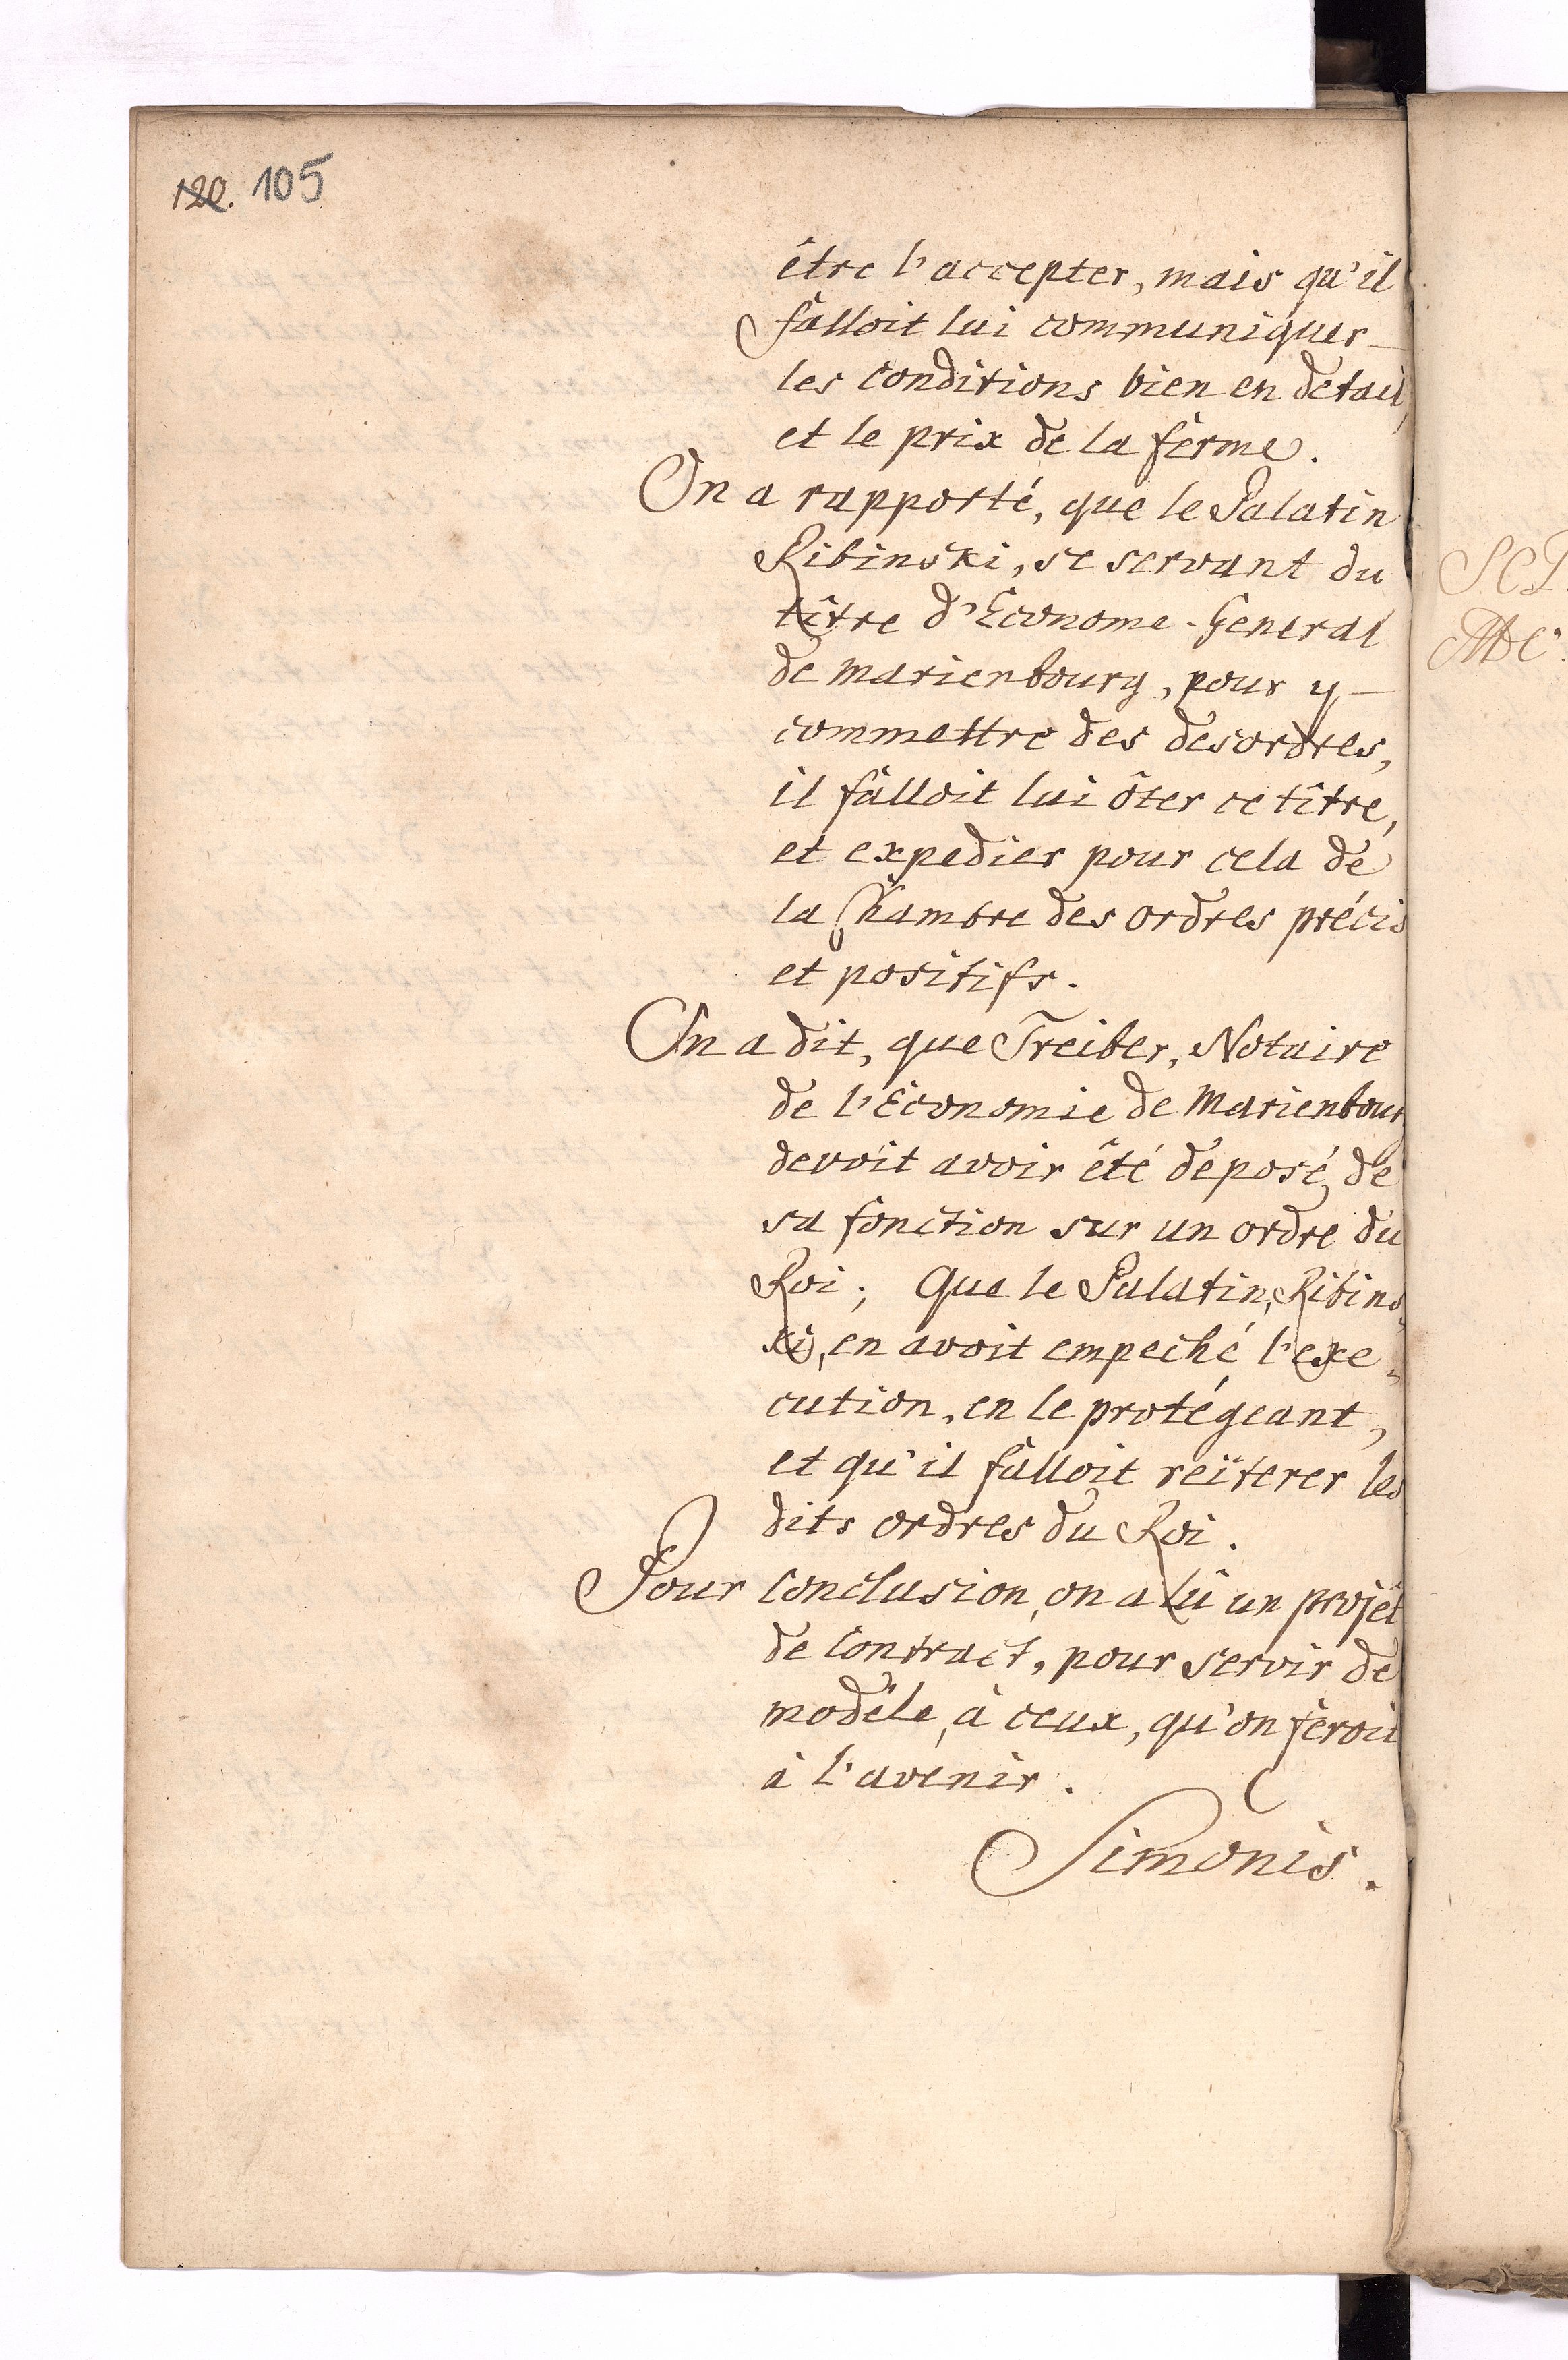 120. 105
être l'accepter, mais qu'il
fâlloit lui communiquer
les conditions bien en détail,
et le prix de la ferme.
On a rapporté, que le Palatin
Ribinski, se servant du
tître d'Econome-General
de Marienbourg, pour y
commettre des desordres,
il fâlloit lui ôter ce tître,
et expedier pour cela de
la Chambre des ordres précis
et positifs.
On a dit, que Treiber, Notaire
de l'Economie de Marienbour
devoit avoir été deposé de
sa fonction sur un ordre du
Roi; Que le Palatin, Ribins,
ki, en avoit empeché l'exe,,
cution, en le protégeant,
et qu'il fâlloit reïterer les
dits ordres du Roi.
Pour conclusion, on a lû un projêt
de Contract, pour servir de
modèle, à ceux, qu'on feroit
à l'avenir.
Simonis.